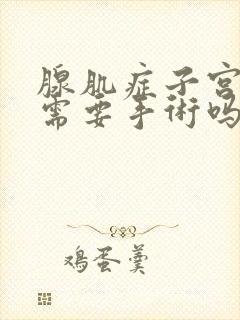 腺肌症子宫
需要手術吗
鸡蛋羹